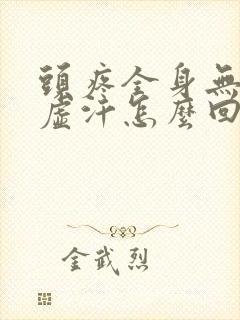 頭疼全身無
虛汗怎麼回
金武烈